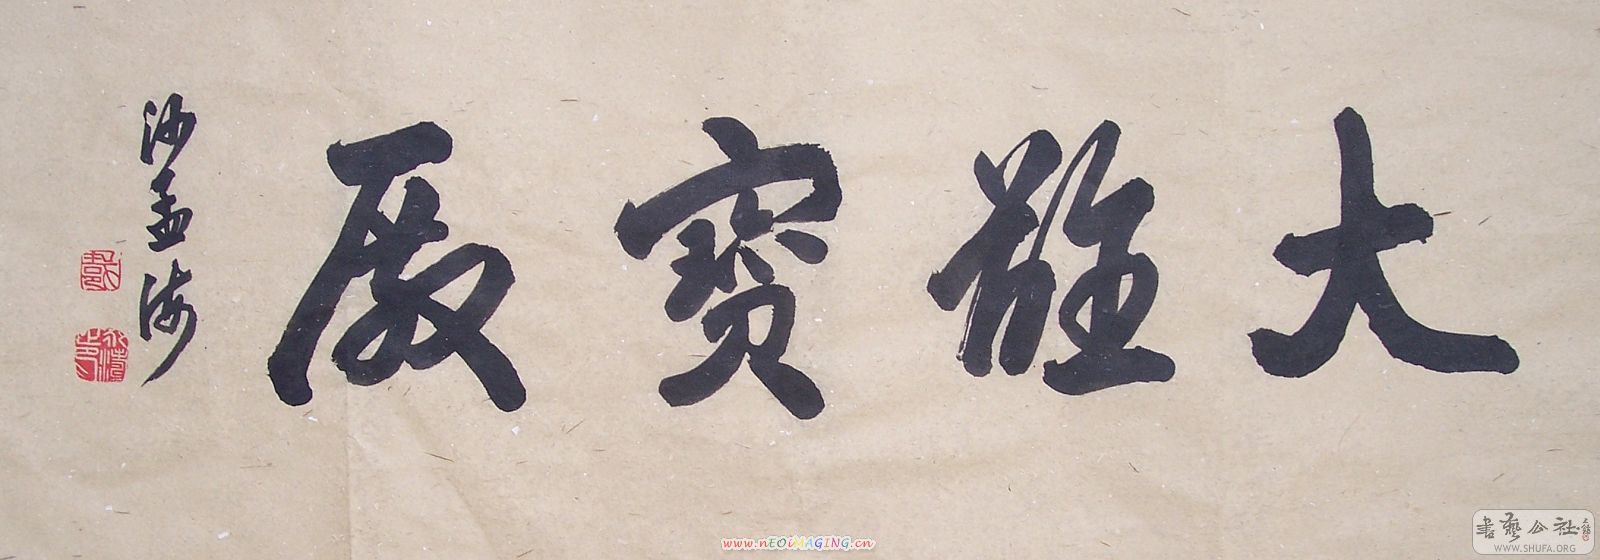 大雄寶殿
沙孟海
www.nEOiMAGiNG.cn
書藝公社
WWW.SHUFA.ORG